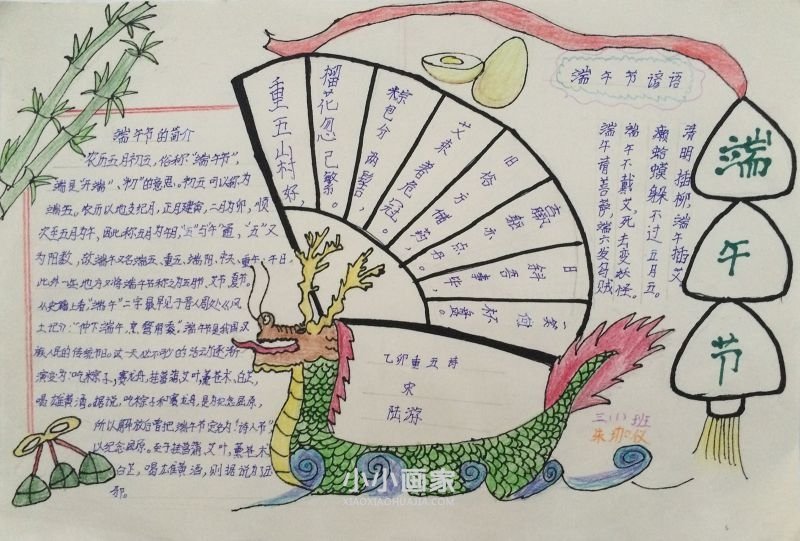 端午节的简介
农历五月初五,俗称"端午节",
端是"开端"、"初"的意思。初五可以称为
端五。农历以地支纪月,正月建寅,二月为卯,顺
次至五月为午,因此称五月为午月,"五"与"午"通,"五"又
为阳数,故端午又名端五、重五、端阳、中天、重午、午日,
此外一些地方又将端午节称之为五月节、艾节、夏节。
从史籍上看"端午"二字最早见于晋人周处《风
土记》:"仲下端午,烹鹜角黍。"端午节是我国汉
族人民的传统节日。这一天必不可少的活动逐渐
演变为:吃粽子,赛龙舟,挂菖蒲、艾叶,薰苍术、白芷,
喝雄黄酒。据说,吃粽子和赛龙舟,是为纪念屈原,
所以解放后曾把端午节定名为"诗人节"
以纪念屈原。至于挂菖蒲、艾叶,薰苍术、
白芷,喝雄黄酒,则据说为压
邪。
重五山村好,
榴花忽已繁。
粽包分两髻,
艾束著危冠。
旧俗方储药,
羸躯亦点丹。
日斜吾事毕,
一笑向杯盘。
乙卯重五诗
宋
陆游
端午节谚语
清明插柳,端午插艾
癞蛤蟆躲不过五月五。
端午不戴艾,死去变妖怪。
端午请菩萨,端六发乌贼
端
午
节
三(1)班
小小画家
XIAOXIAOHUAJIA.COM